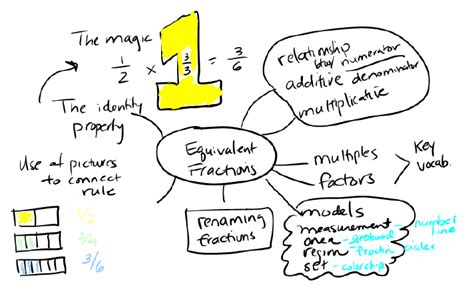 The magic 1
1/2 × 3/3 = 3/6
The identity
property
Use of pictures
to connect
rule
1/2
2/4
3/6
Equivalent
Fractions
renaming
fractions
relationship
btw numerator
additive denominator
multiplicative
multiples
factors
Key
vocab.
models
measurement - number line
area - geoboard
region - fraction circles
set - colorchip